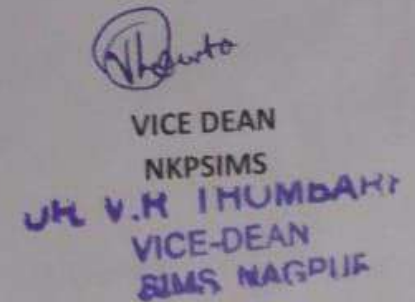 VICE DEAN
NKPSIMS
V.R THUMBARE
VICE-DEAN
SIMS NAGPUR